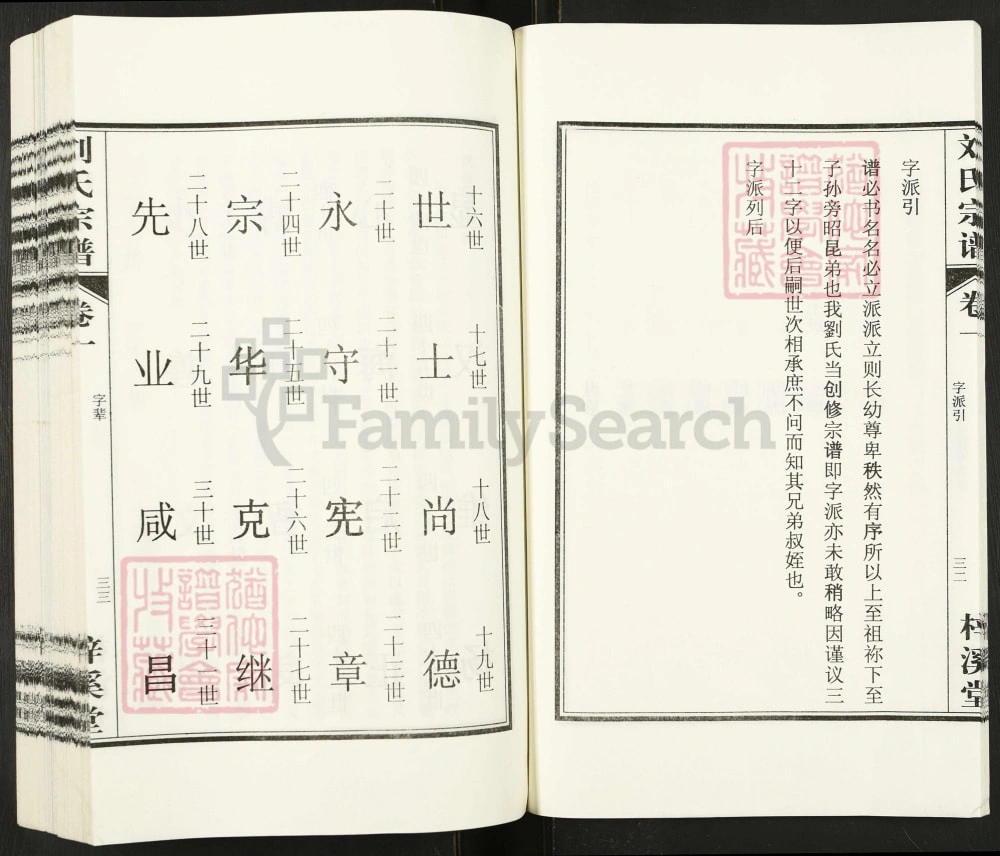 刘氏宗谱
卷一
字派引
三二
梓溪堂
字派引
谱必书名名必立派派立则长幼尊卑秩然有序所以上至祖祢下至
子孙旁昭昆弟也我劉氏当创修宗谱即字派亦未敢稍略因谨议三
十二字以便后嗣世次相承庶不问而知其兄弟叔姪也。
字派列后
十六世 十七世 十八世 十九世
世 士 尚 德
二十世 二十一世 二十二世 二十三世
永 守 宪 章
二十四世 二十五世 二十六世 二十七世
宗 华 克 继
二十八世 二十九世 三十世 三十一世
先 业 咸 昌
刘氏宗谱
卷一
字辈
三三
梓溪堂
FamilySearch